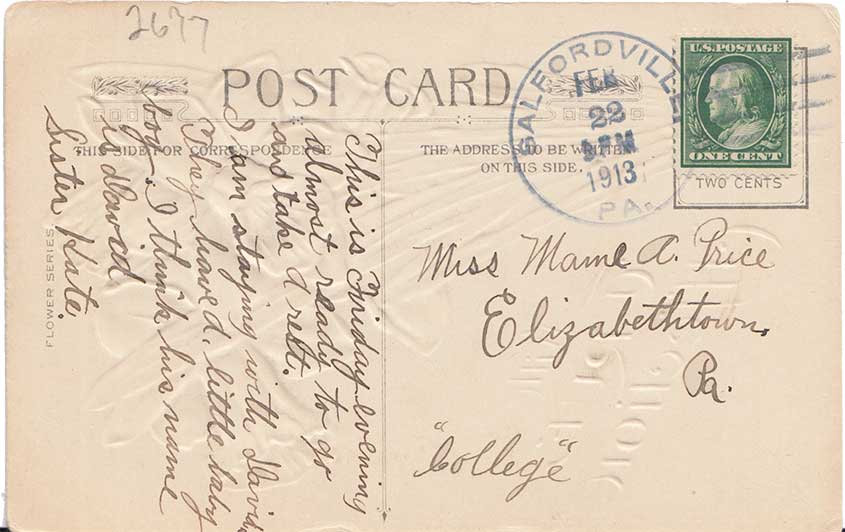 2677
POST CARD
THIS SIDE FOR CORRESPONDENCE
THE ADDRESS TO BE WRITTEN
ON THIS SIDE.
SALFORDVILLE
FEB
22
PM
1913
PA.
U.S. POSTAGE
ONE CENT
TWO CENTS
This is Friday evening
almost ready to go
and take a rest.
I am staying with David
They have a little baby
boy. I think his name
is David
Sister Kate.
Miss Mame A. Price
Elizabethtown,
Pa.
"College"
FLOWER SERIES